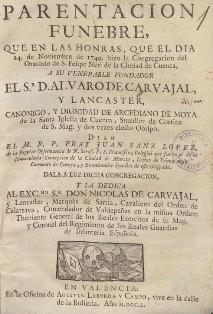 PARENTACION
FUNEBRE,
QUE EN LAS HONRAS, QUE EL DIA
24. de Noviembre de 1749. hizo la Congregacion del
Oratorio de S. Felipe Neri de la Ciudad de Cuenca,
A SU VENERABLE FUNDADOR
EL S.R D. ALVARO DE CARVAJAL,
Y LANCASTER,
CANONIGO, Y DIGNIDAD DE ARCEDIANO DE MOYA
de la Santa Iglesia de Cuenca, Sumiller de Cortina
de S. Mag. y dos vezes electo Obispo.
DIXO
EL M. R. P. FRAY JUAN SANZ LOPEZ,
de la Regular Observancia de N. Seraf. P. S. Francisco,
Concepcion de la Ciudad de Murcia, Lector de
Convento de Cuenca, y Examinador
DALA A LUZ DICHA CONGREGACION,
Y LA DEDICA
AL EXC.MO S.R DON NICOLAS DE CARVAJAL,
y Lancaster, Marquès de Sarria, Cavallero del Orden de
Calatrava, Comendador de Valdepeñas en la misma Orden,
Theniente General de los Reales Exercitos de su Mag.
y Coronel del Regimiento de las Reales Guardias
de Infanteria Española.
EN VALENCIA:
En la Oficina de AGUSTIN LABORDA Y CAMPO, vive en la calle
de la Bolseria. Año M.DCC.L.